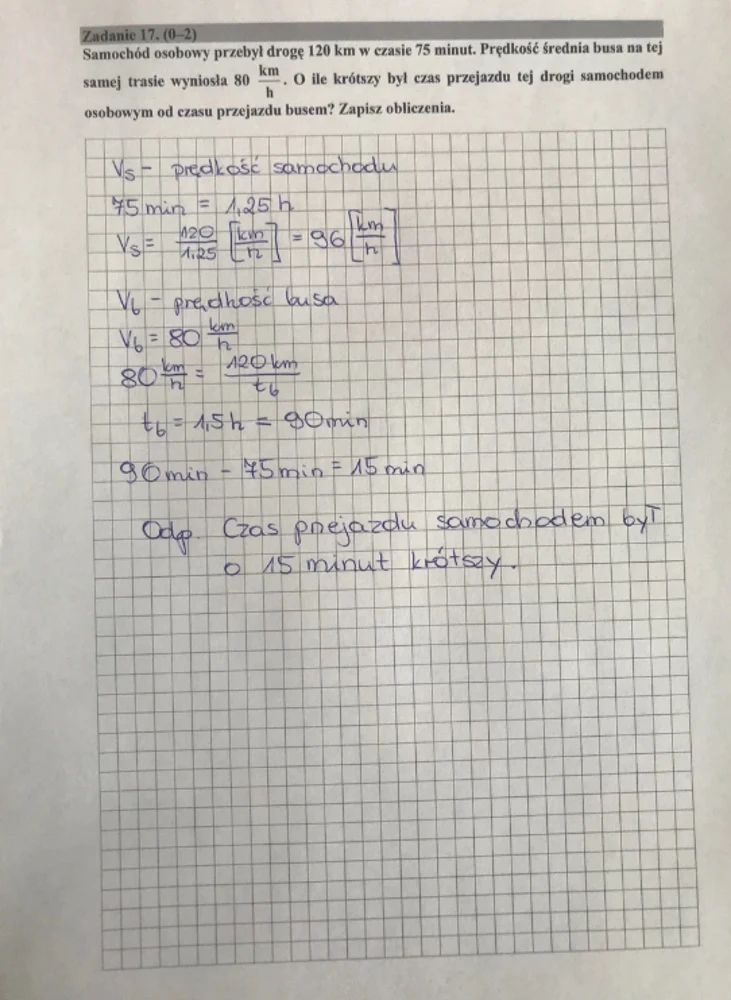 Zadanie 17. (0–2)
Samochód osobowy przebył drogę 120 km w czasie 75 minut. Prędkość średnia busa na tej
samej trasie wyniosła 80 km/h. O ile krótszy był czas przejazdu tej drogi samochodem
osobowym od czasu przejazdu busem? Zapisz obliczenia.
Vs – prędkość samochodu
75 min = 1,25 h
Vs = 120/1,25 [km/h] = 96 [km/h]
Vb – prędkość busa
Vb = 80 km/h
80 km/h = 120 km/tb
tb = 1,5 h = 90 min
90 min – 75 min = 15 min
Odp. Czas przejazdu samochodem był
o 15 minut krótszy.